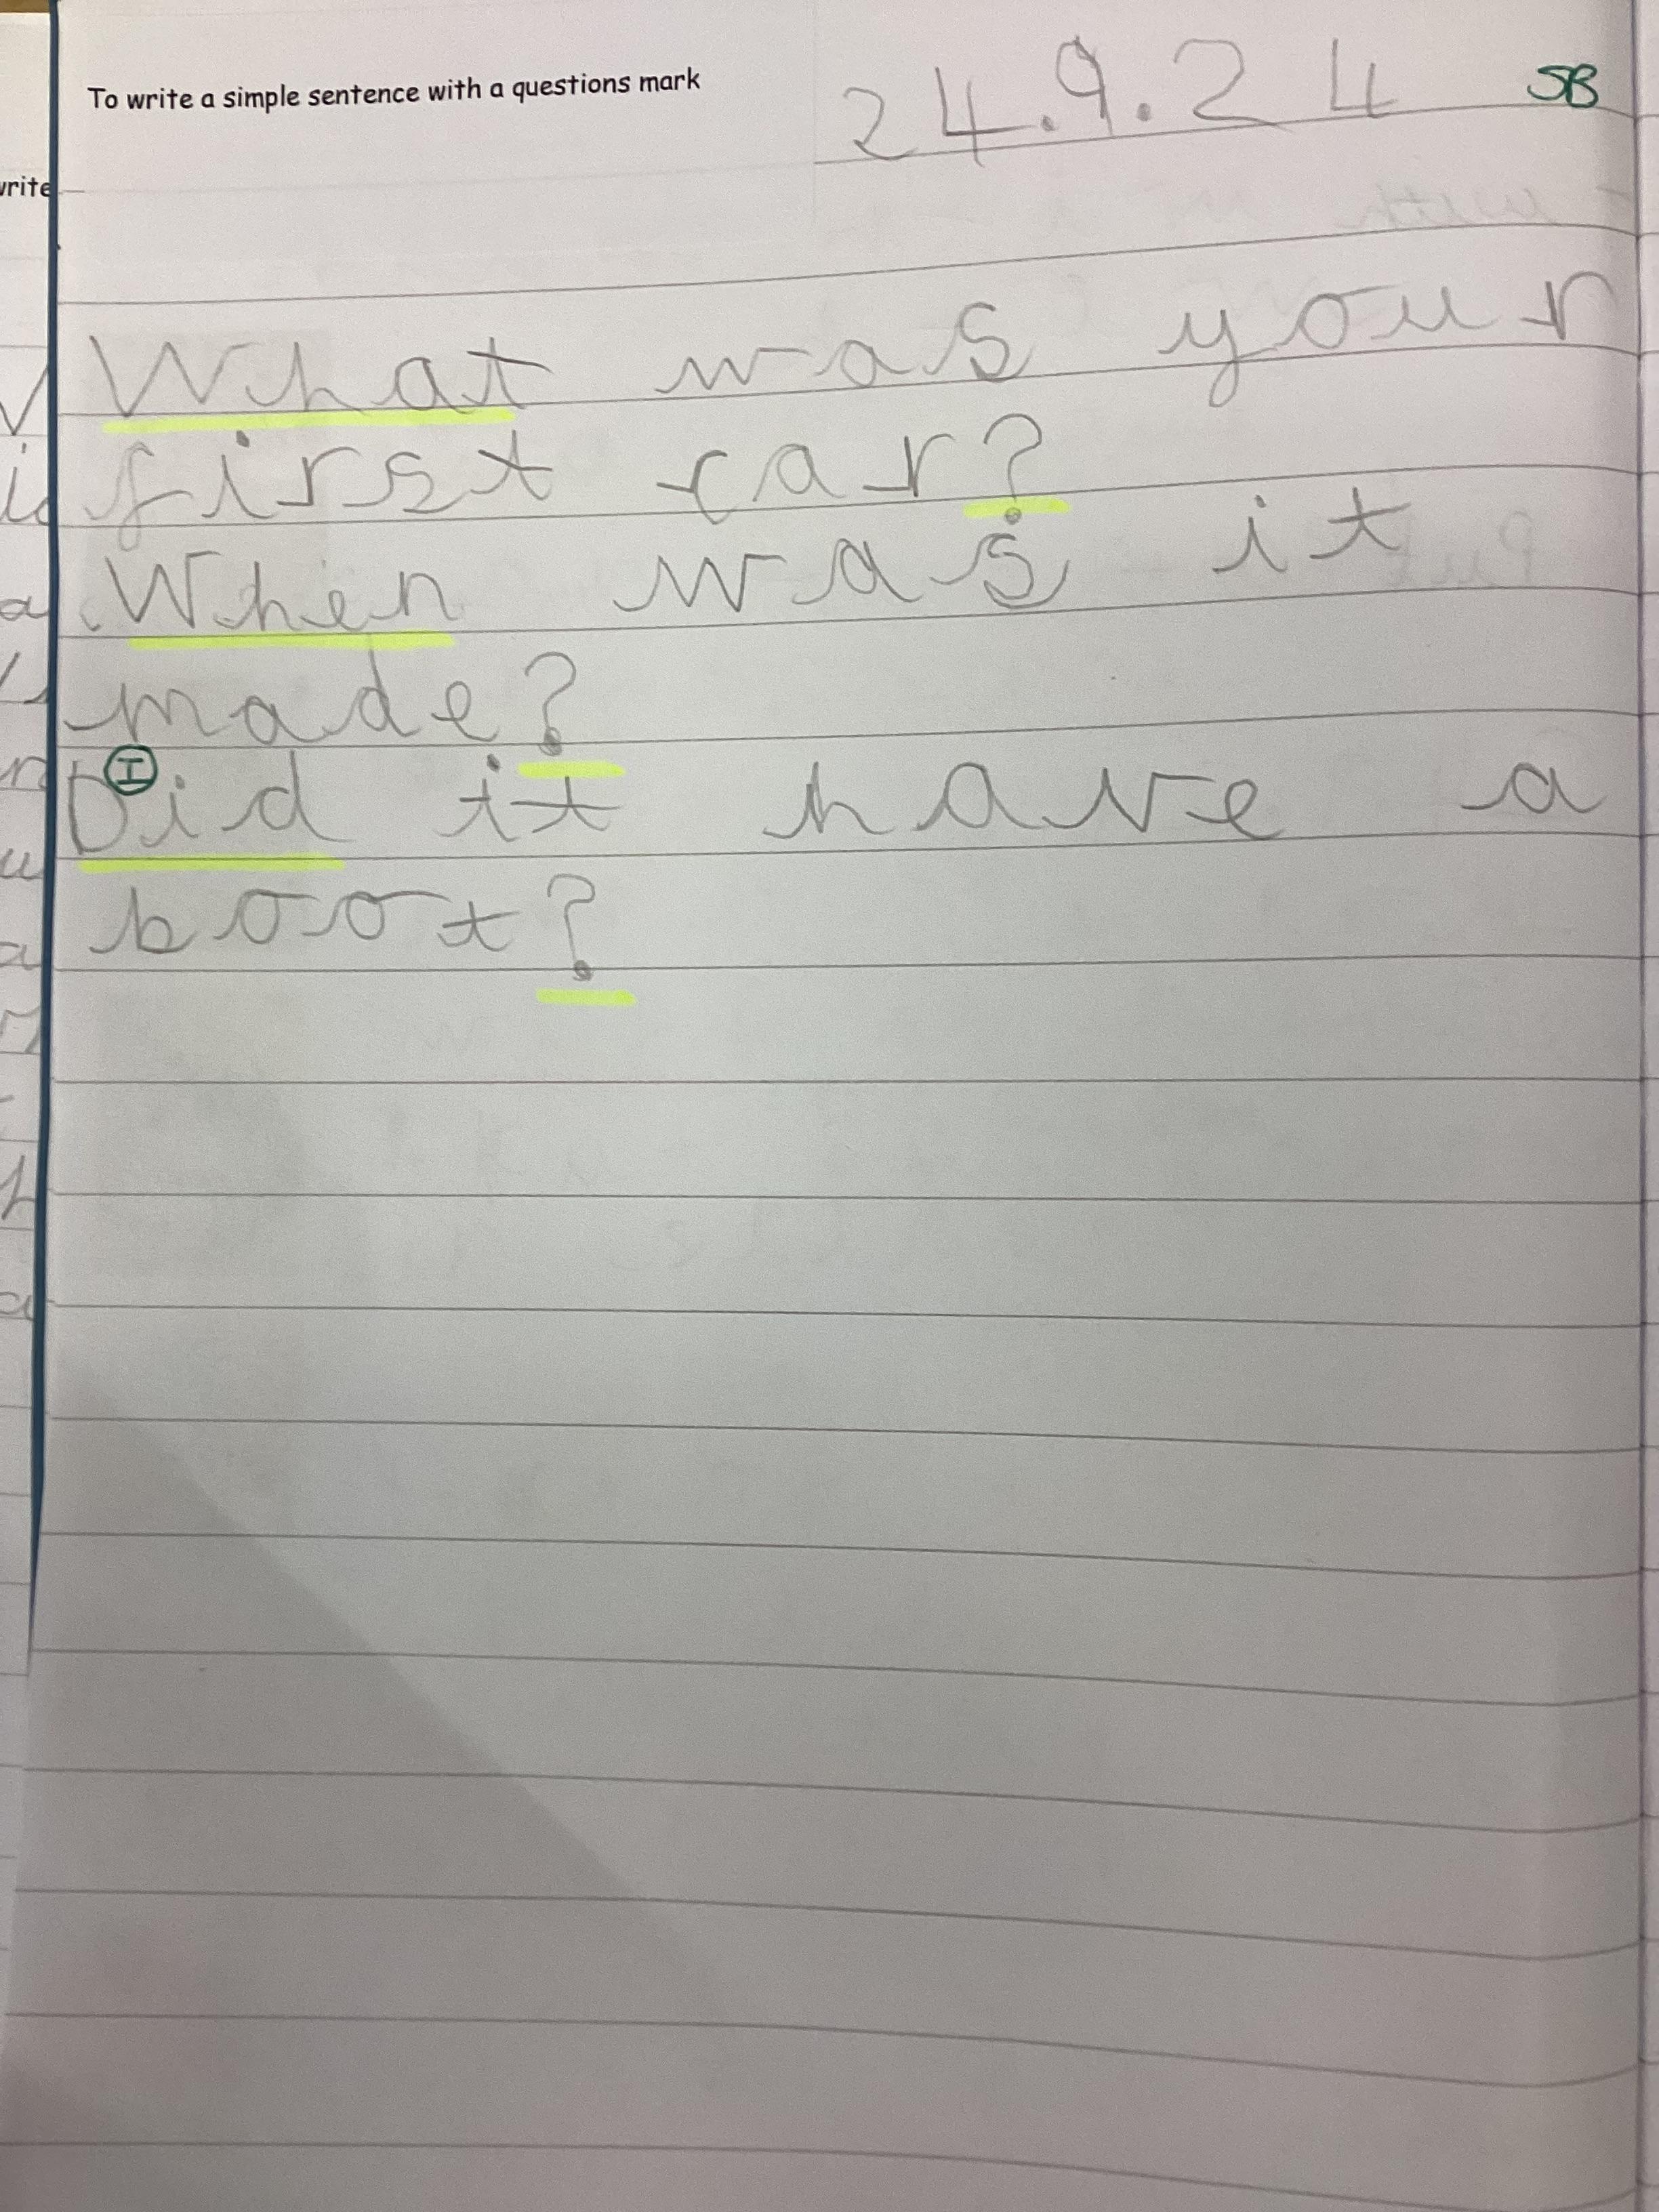 To write a simple sentence with a questions mark
24.9.24
SB
write
What was your
first car?
When was it
made?
I
Did it have a
boot?